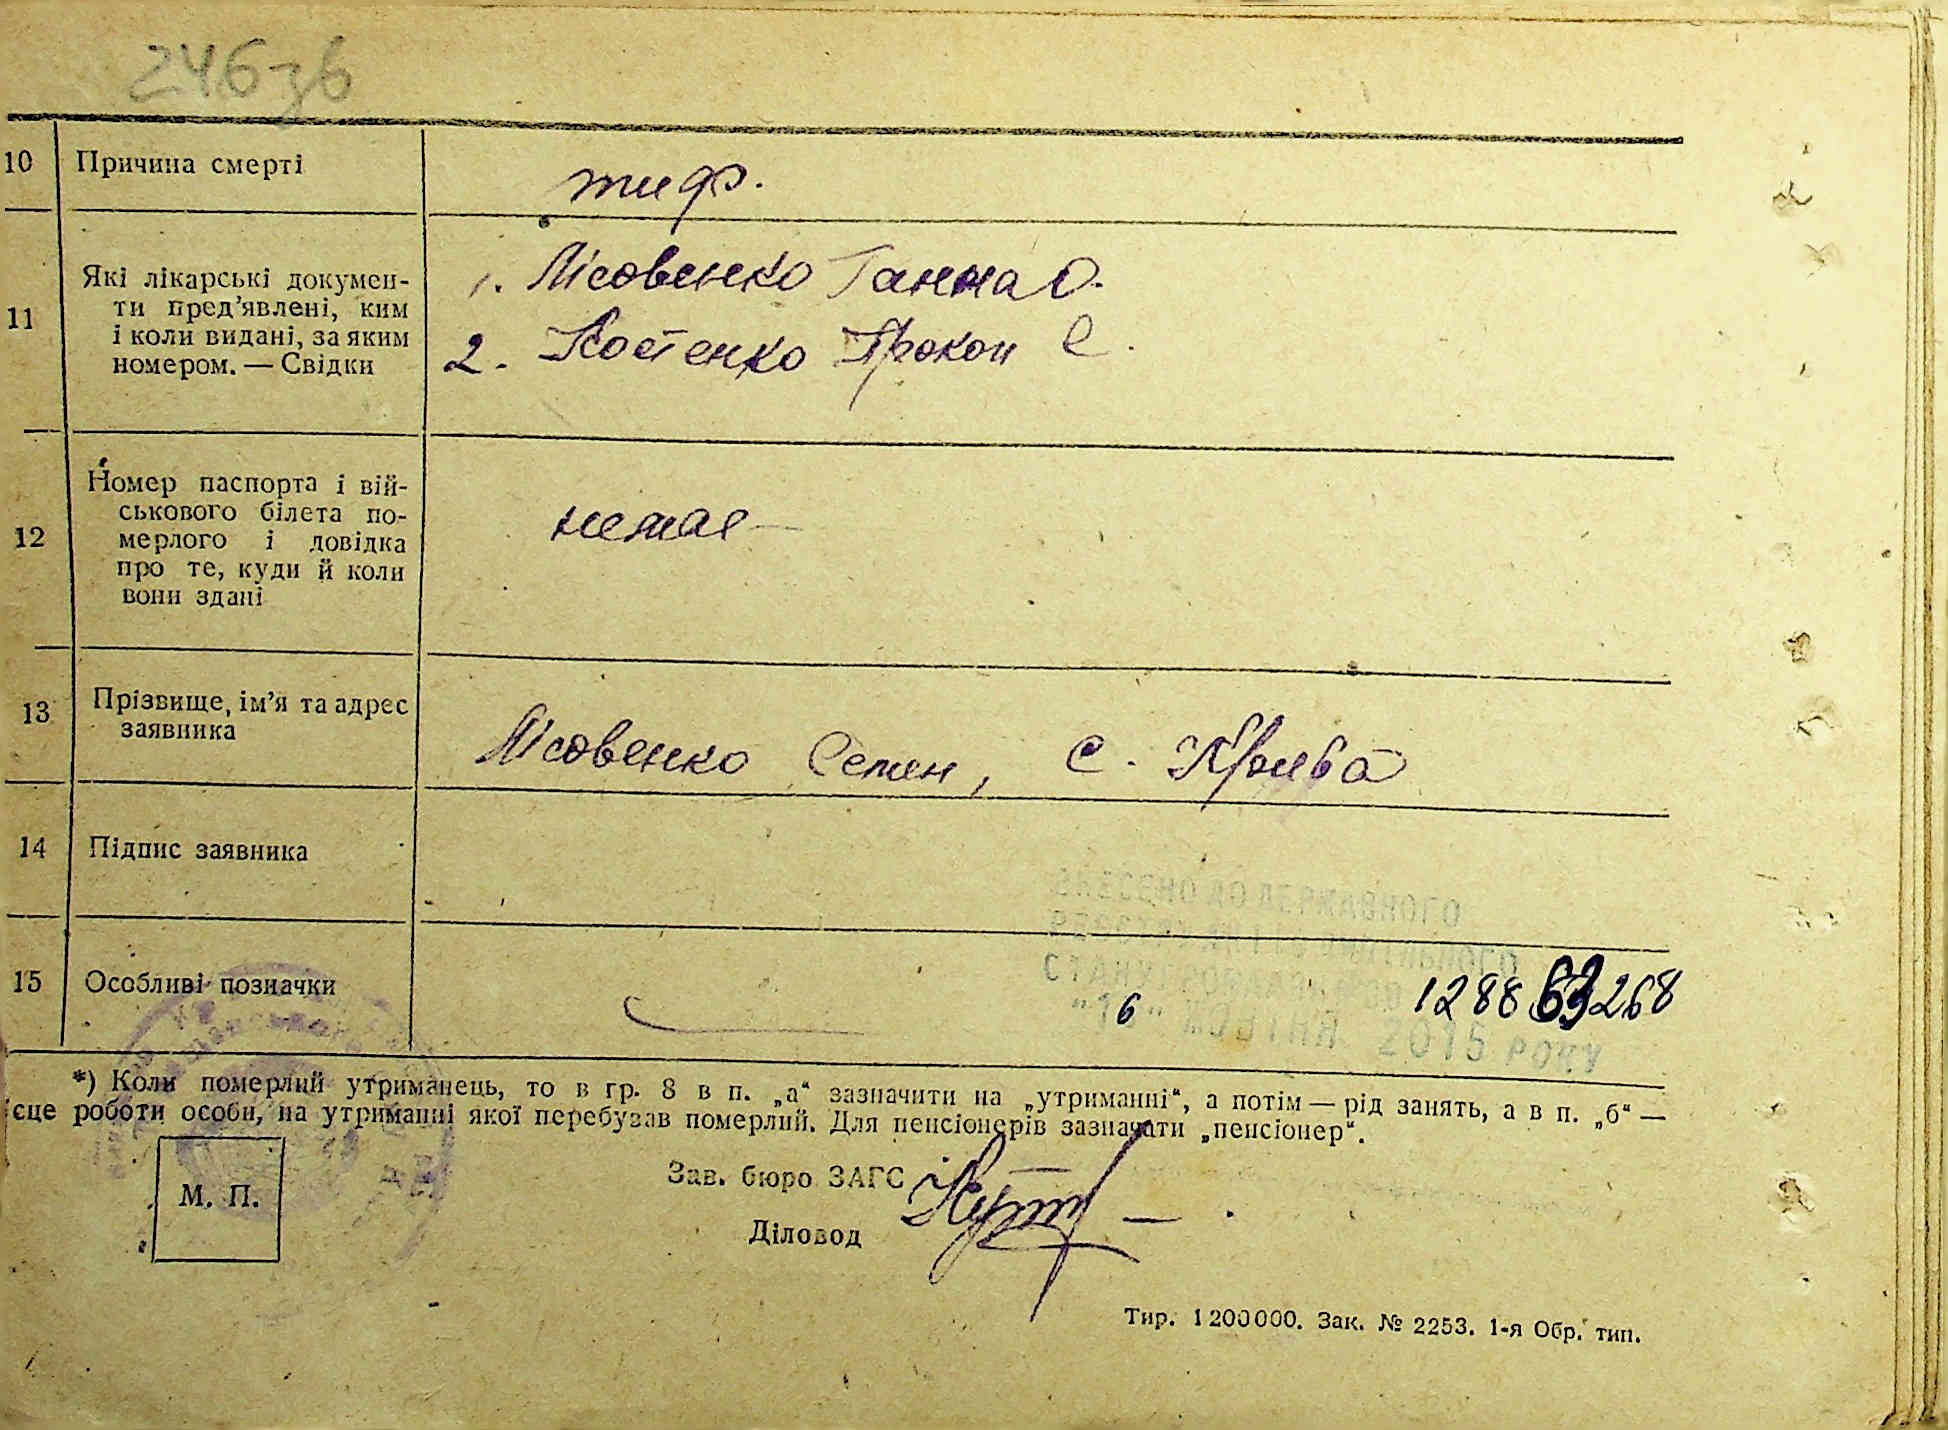 246зв
10 Причина смерті тиф.
11 Які лікарські докумен-
ти пред’явлені, ким
і коли видані, за яким
номером. — Свідки
1. Лісовенко Ганна О.
2. Костенко Прокоп С.
12 Номер паспорта і вій-
ськового білета по-
мерлого і довідка
про те, куди й коли
вони здані
немає
13 Прізвище, ім’я та адрес
заявника
Лісовенко Семен, с.
14 Підпис заявника
15 Особливі позначки
ВНЕСЕНО ДО ДЕРЖАВНОГО
"16" ЖОВТНЯ 2015 РОКУ
*) Коли померлий утриманець, то в гр. 8 в п. „а“ зазначити на „утриманні“, а потім — рід занять, а в п. „б“ —
ісце роботи особи, на утриманні якої перебував померлий. Для пенсіонерів зазначати „пенсіонер“.
М. П.
Зав. бюро ЗАГС
Діловод
Тир. 1200000. Зак. № 2253. 1-я Обр. тип.